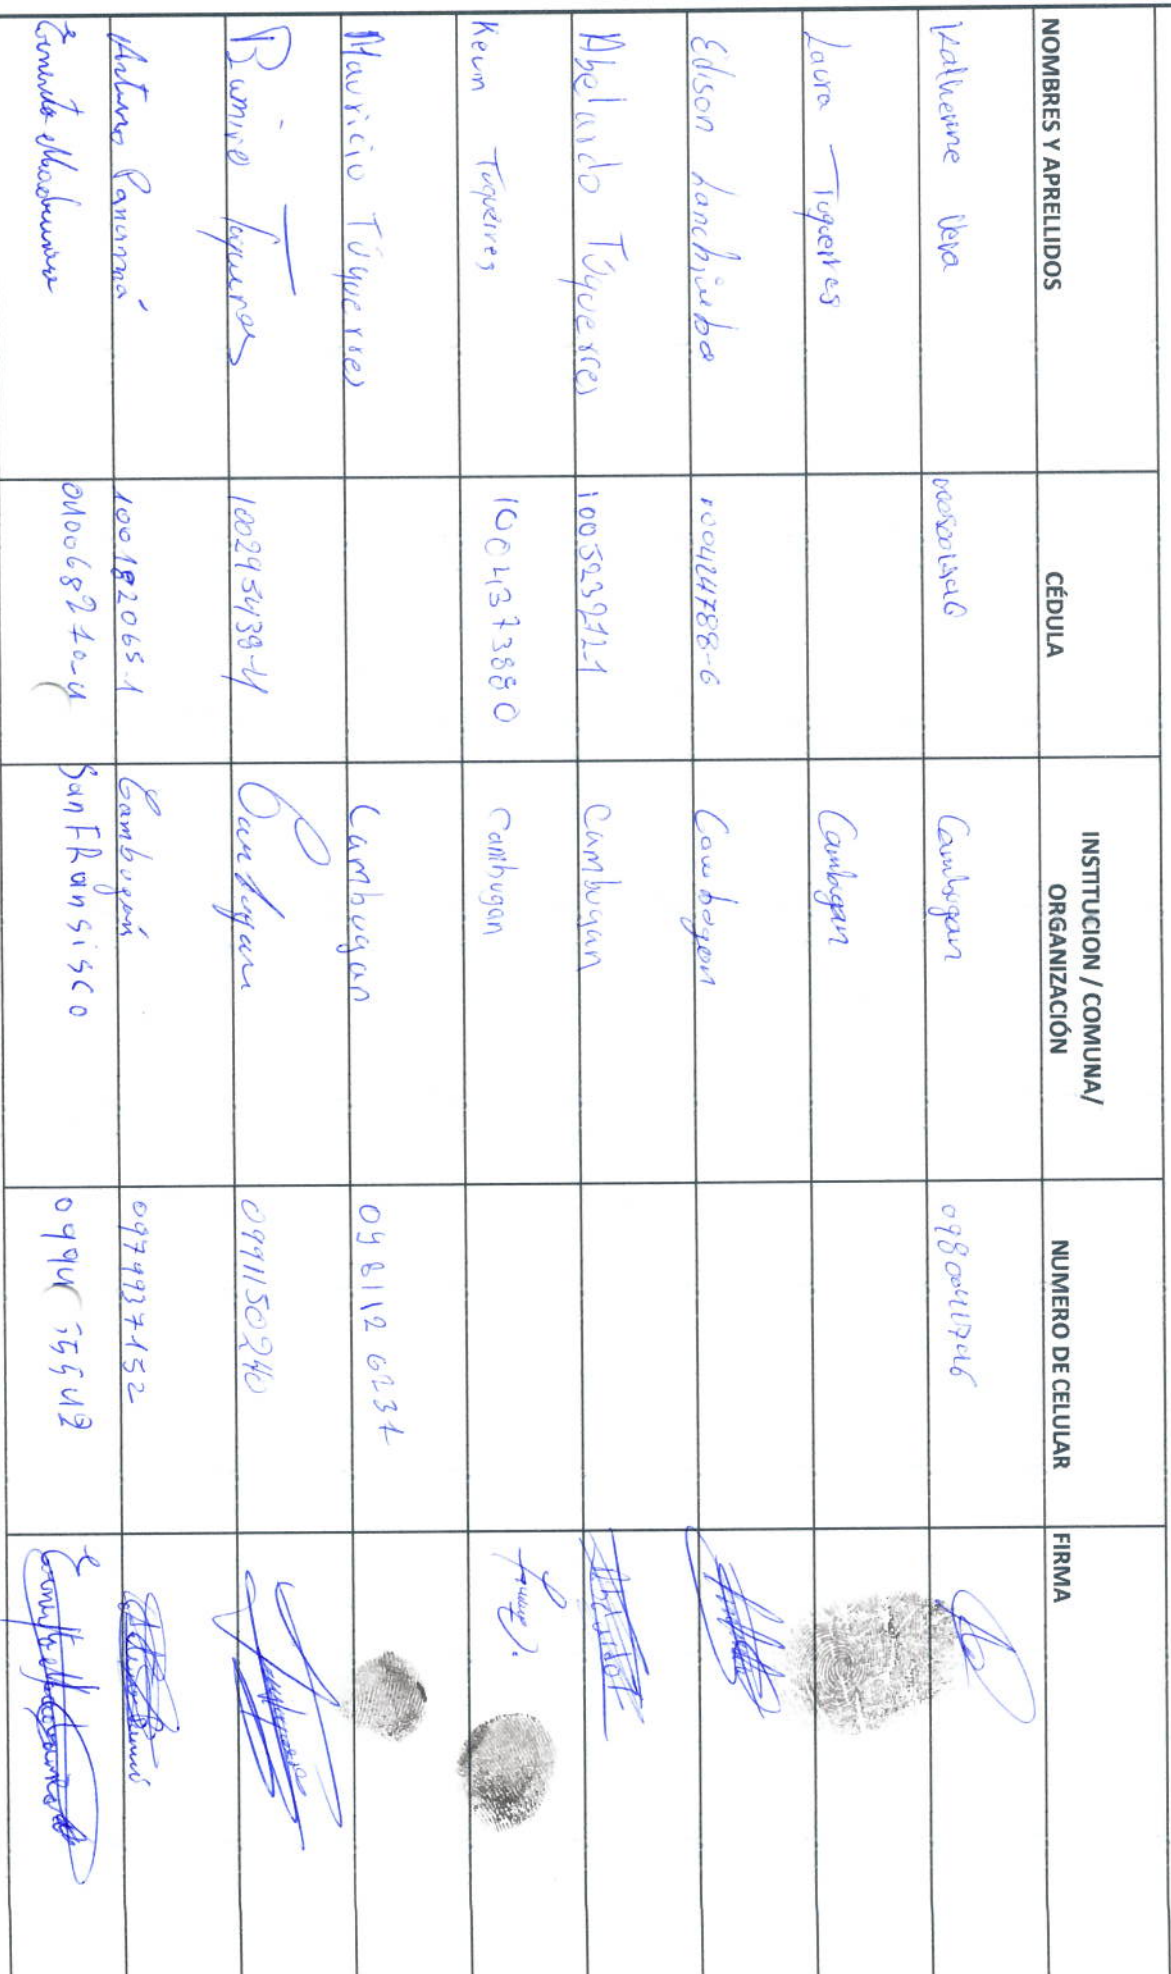 NOMBRES Y APRELLIDOS CÉDULA INSTITUCION / COMUNA/ ORGANIZACIÓN NUMERO DE CELULAR FIRMA
Katherine Vera Cambugan
Laura Tuquerres Cambugan
Edison Lanchimba 100424788-6 Cambugan
Abelardo Túquerres 100523212-1 Cambugan
Kevin Tuquerres 1004373880 Cambugan
Mauricio Túquerres Cambugan 0981126237
Ramiro Tuquerres 100295438-4 Cambugan 0991150240
Arturo Panamá 100182065-1 Cambugan 0979937152
San FRansisco